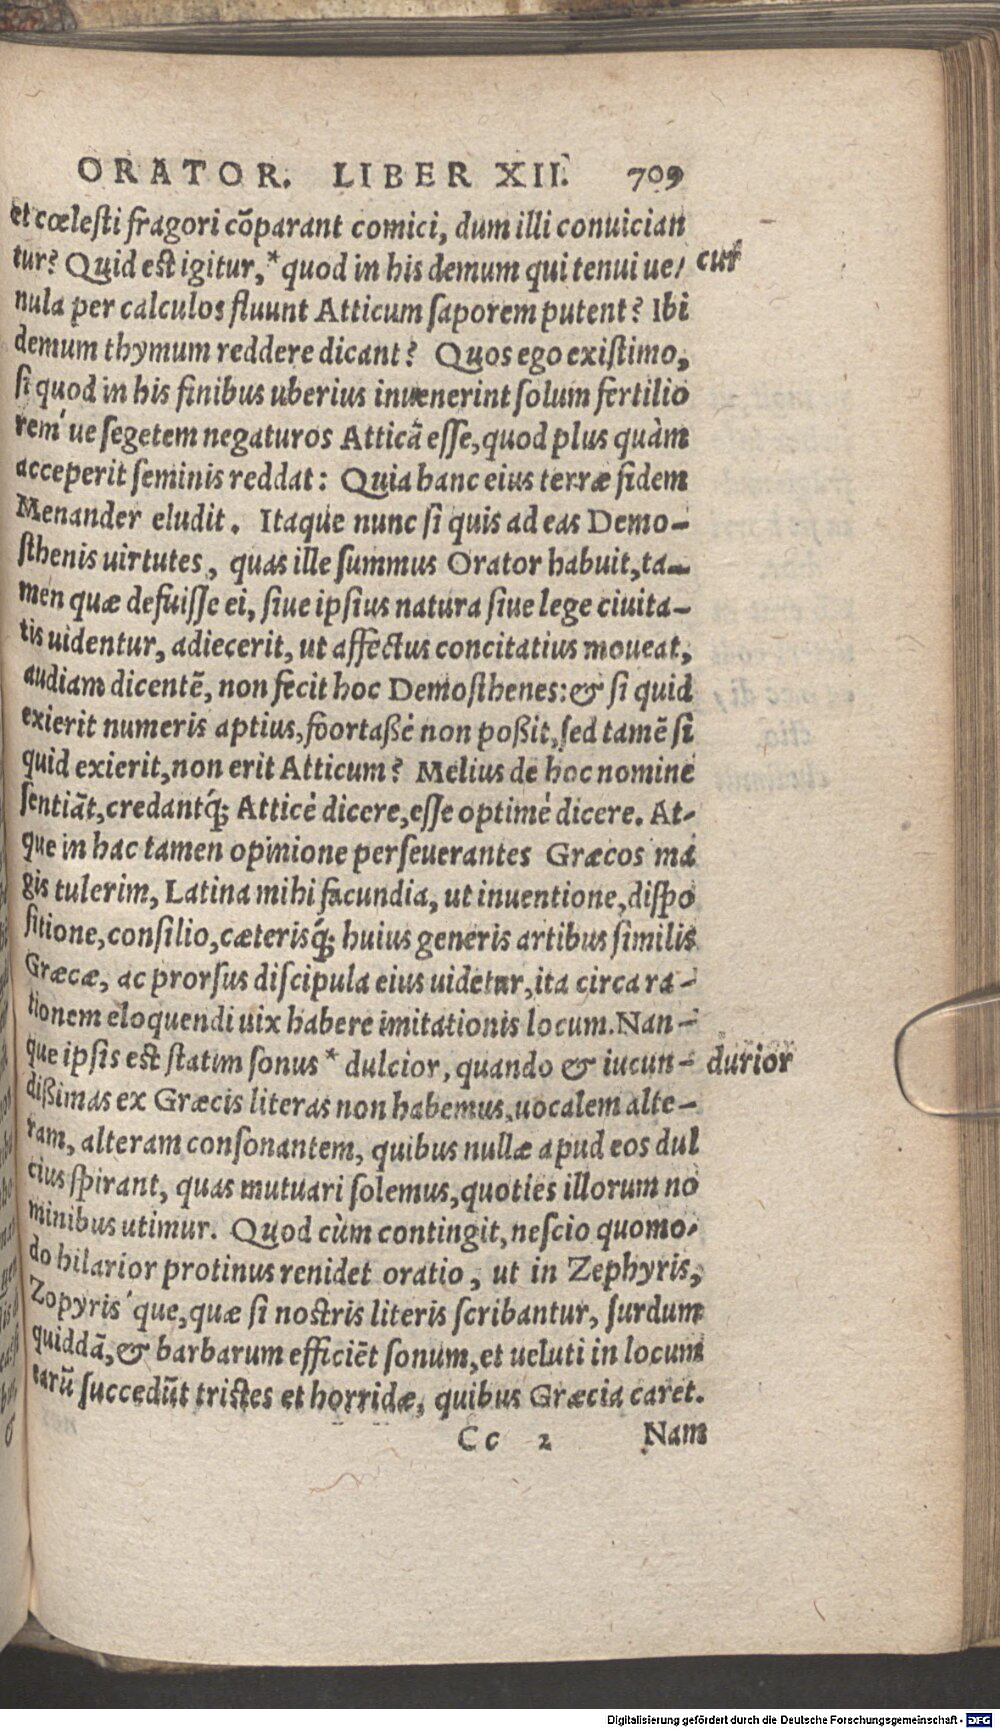 ORATOR. LIBER XII. 709
et cœlesti fragori cōparant comici, dum illi conuician
tur? Quid est igitur, * quod in his demum qui tenui ue/ cur
nula per calculos fluunt Atticum saporem putent? Ibi
demum thymum reddere dicant? Quos ego existimo,
si quod in his finibus uberius inuenerint solum fertilio
rem´ue segetem negaturos Atticā esse, quod plus quàm
acceperit seminis reddat: Quia hanc eius terræ fidem
Menander eludit. Itaque nunc si quis ad eas Demo-
sthenis uirtutes, quas ille summus Orator habuit, ta-
men quæ defuisse ei, siue ipsius natura siue lege ciuita-
tis uidentur, adiecerit, ut affectus concitatius moueat,
audiam dicentē, non fecit hoc Demosthenes: & si quid
exierit numeris aptius, foortaßè non poßit, sed tamē si
quid exierit, non erit Atticum? Melius de hoc nomine
sentiāt, credantq́; Atticè dicere, esse optimè dicere. At-
que in hac tamen opinione perseuerantes Græcos ma
gis tulerim, Latina mihi facundia, ut inuentione, dispo
sitione, consilio, cæterisq́; huius generis artibus similis
Græcæ, ac prorsus discipula eius uidetur, ita circa ra-
tionem eloquendi uix habere imitationis locum. Nan-
que ipsis est statim sonus * dulcior, quando & iucun- durior
dißimas ex Græcis literas non habemus, uocalem alte-
ram, alteram consonantem, quibus nullæ apud eos dul
cius spirant, quas mutuari solemus, quoties illorum no
minibus utimur. Quod cùm contingit, nescio quomo-
do hilarior protinus renidet oratio, ut in Zephyris,
Zopyris´que, quæ si nostris literis scribantur, surdum
quiddā, & barbarum efficiēt sonum, et ueluti in locum
earū succedūt tristes et horridæ, quibus Græcia caret.
Cc 2 Nam
Digitalisierung gefördert durch die Deutsche Forschungsgemeinschaft - DFG